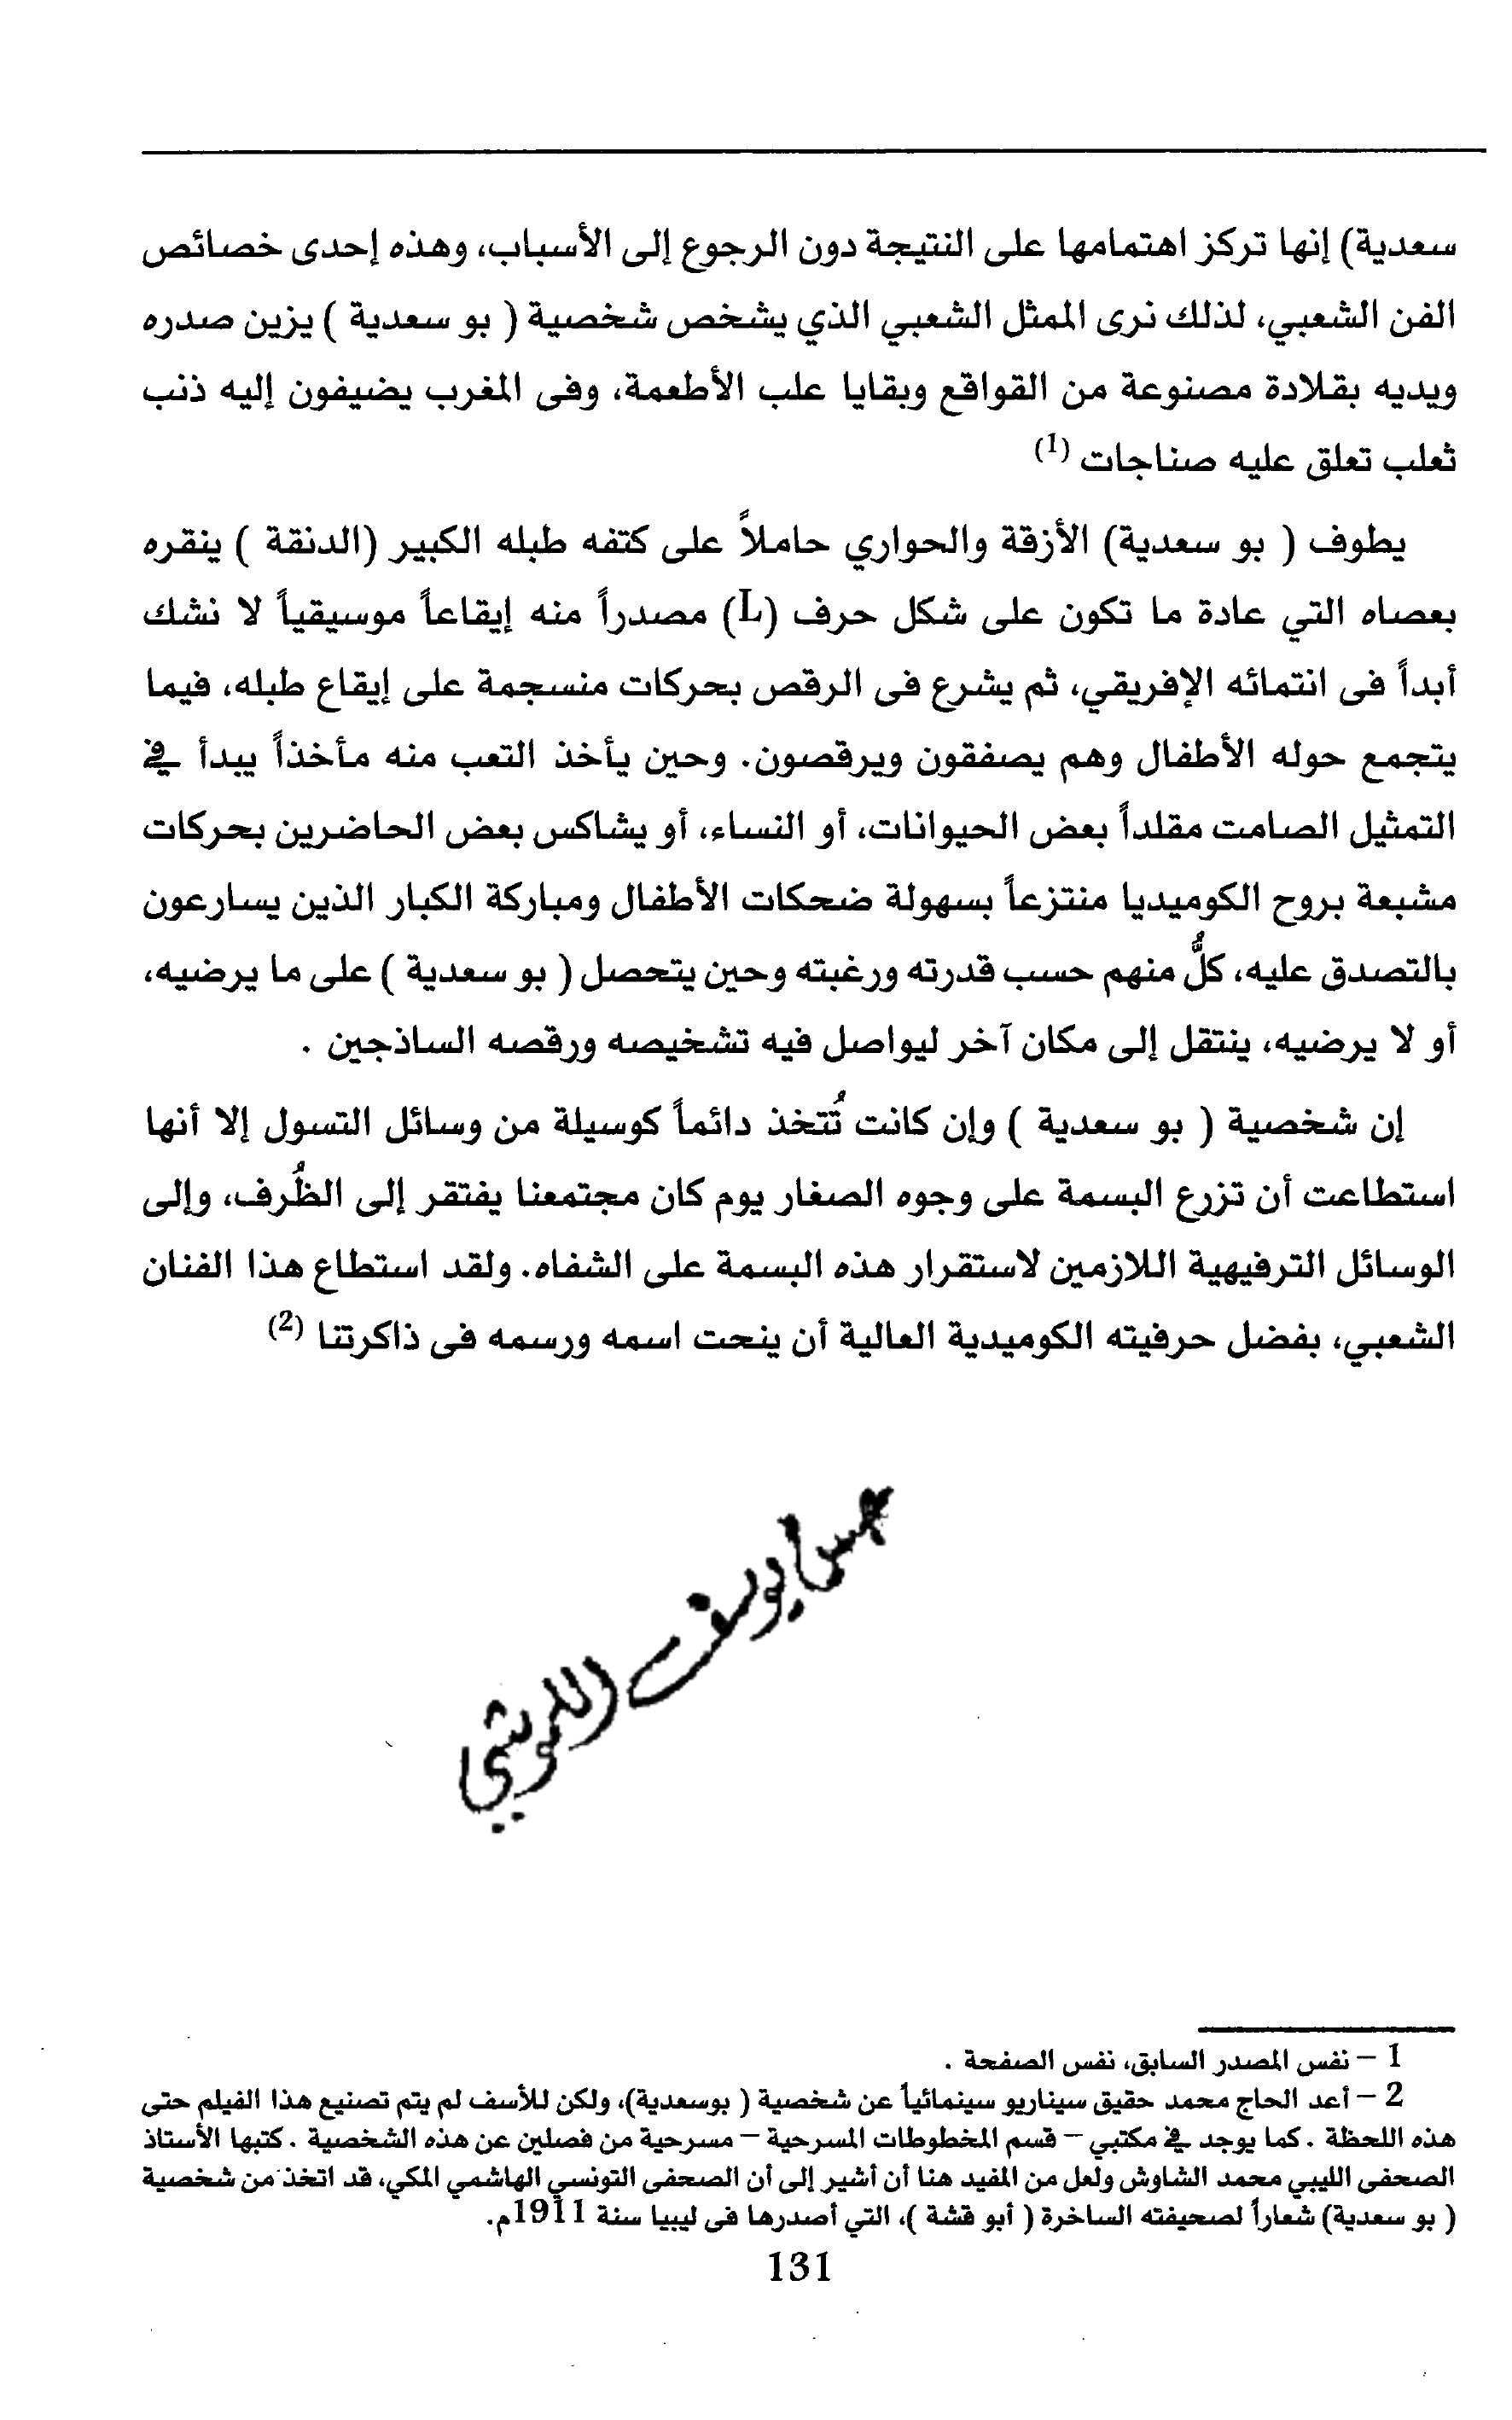 سعدية) إنها تركز اهتمامها على النتيجة دون الرجوع إلى الأسباب، وهذه إحدى خصائص
الفن الشعبي، لذلك نرى الممثل الشعبي الذي يشخص شخصية ( بو سعدية ) يزين صدره
ويديه بقلادة مصنوعة من القواقع وبقايا علب الأطعمة، وفى المغرب يضيفون إليه ذنب
ثعلب تعلق عليه صناجات (1)
يطوف ( بو سعدية) الأزقة والحواري حاملاً على كتفه طبله الكبير (الدنقة ) ينقره
بعصاه التي عادة ما تكون على شكل حرف (L) مصدراً منه إيقاعاً موسيقياً لا نشك
أبداً فى انتمائه الإفريقي، ثم يشرع فى الرقص بحركات منسجمة على إيقاع طبله، فيما
يتجمع حوله الأطفال وهم يصفقون ويرقصون. وحين يأخذ التعب منه مأخذاً يبدأ في
التمثيل الصامت مقلداً بعض الحيوانات، أو النساء، أو يشاكس بعض الحاضرين بحركات
مشبعة بروح الكوميديا منتزعاً بسهولة ضحكات الأطفال ومباركة الكبار الذين يسارعون
بالتصدق عليه، كلُّ منهم حسب قدرته ورغبته وحين يتحصل ( بو سعدية ) على ما يرضيه،
أو لا يرضيه، ينتقل إلى مكان آخر ليواصل فيه تشخيصه ورقصه الساذجين .
إن شخصية ( بو سعدية ) وإن كانت تُتخذ دائماً كوسيلة من وسائل التسول إلا أنها
استطاعت أن تزرع البسمة على وجوه الصغار يوم كان مجتمعنا يفتقر إلى الظُرف، وإلى
الوسائل الترفيهية اللازمين لاستقرار هذه البسمة على الشفاه. ولقد استطاع هذا الفنان
الشعبي، بفضل حرفيته الكوميدية العالية أن ينحت اسمه ورسمه فى ذاكرتنا (2)
يوسف
1 – نفس المصدر السابق، نفس الصفحة .
2 – أعد الحاج محمد حقيق سيناريو سينمائياً عن شخصية ( بوسعدية)، ولكن للأسف لم يتم تصنيع هذا الفيلم حتى
هذه اللحظة . كما يوجد في مكتبي – قسم المخطوطات المسرحية – مسرحية من فصلين عن هذه الشخصية . كتبها الأستاذ
الصحفى الليبي محمد الشاوش ولعل من المفيد هنا أن أشير إلى أن الصحفى التونسي الهاشمي المكي، قد اتخذ من شخصية
( بو سعدية) شعاراً لصحيفته الساخرة ( أبو قشة )، التي أصدرها فى ليبيا سنة 1911م.
131